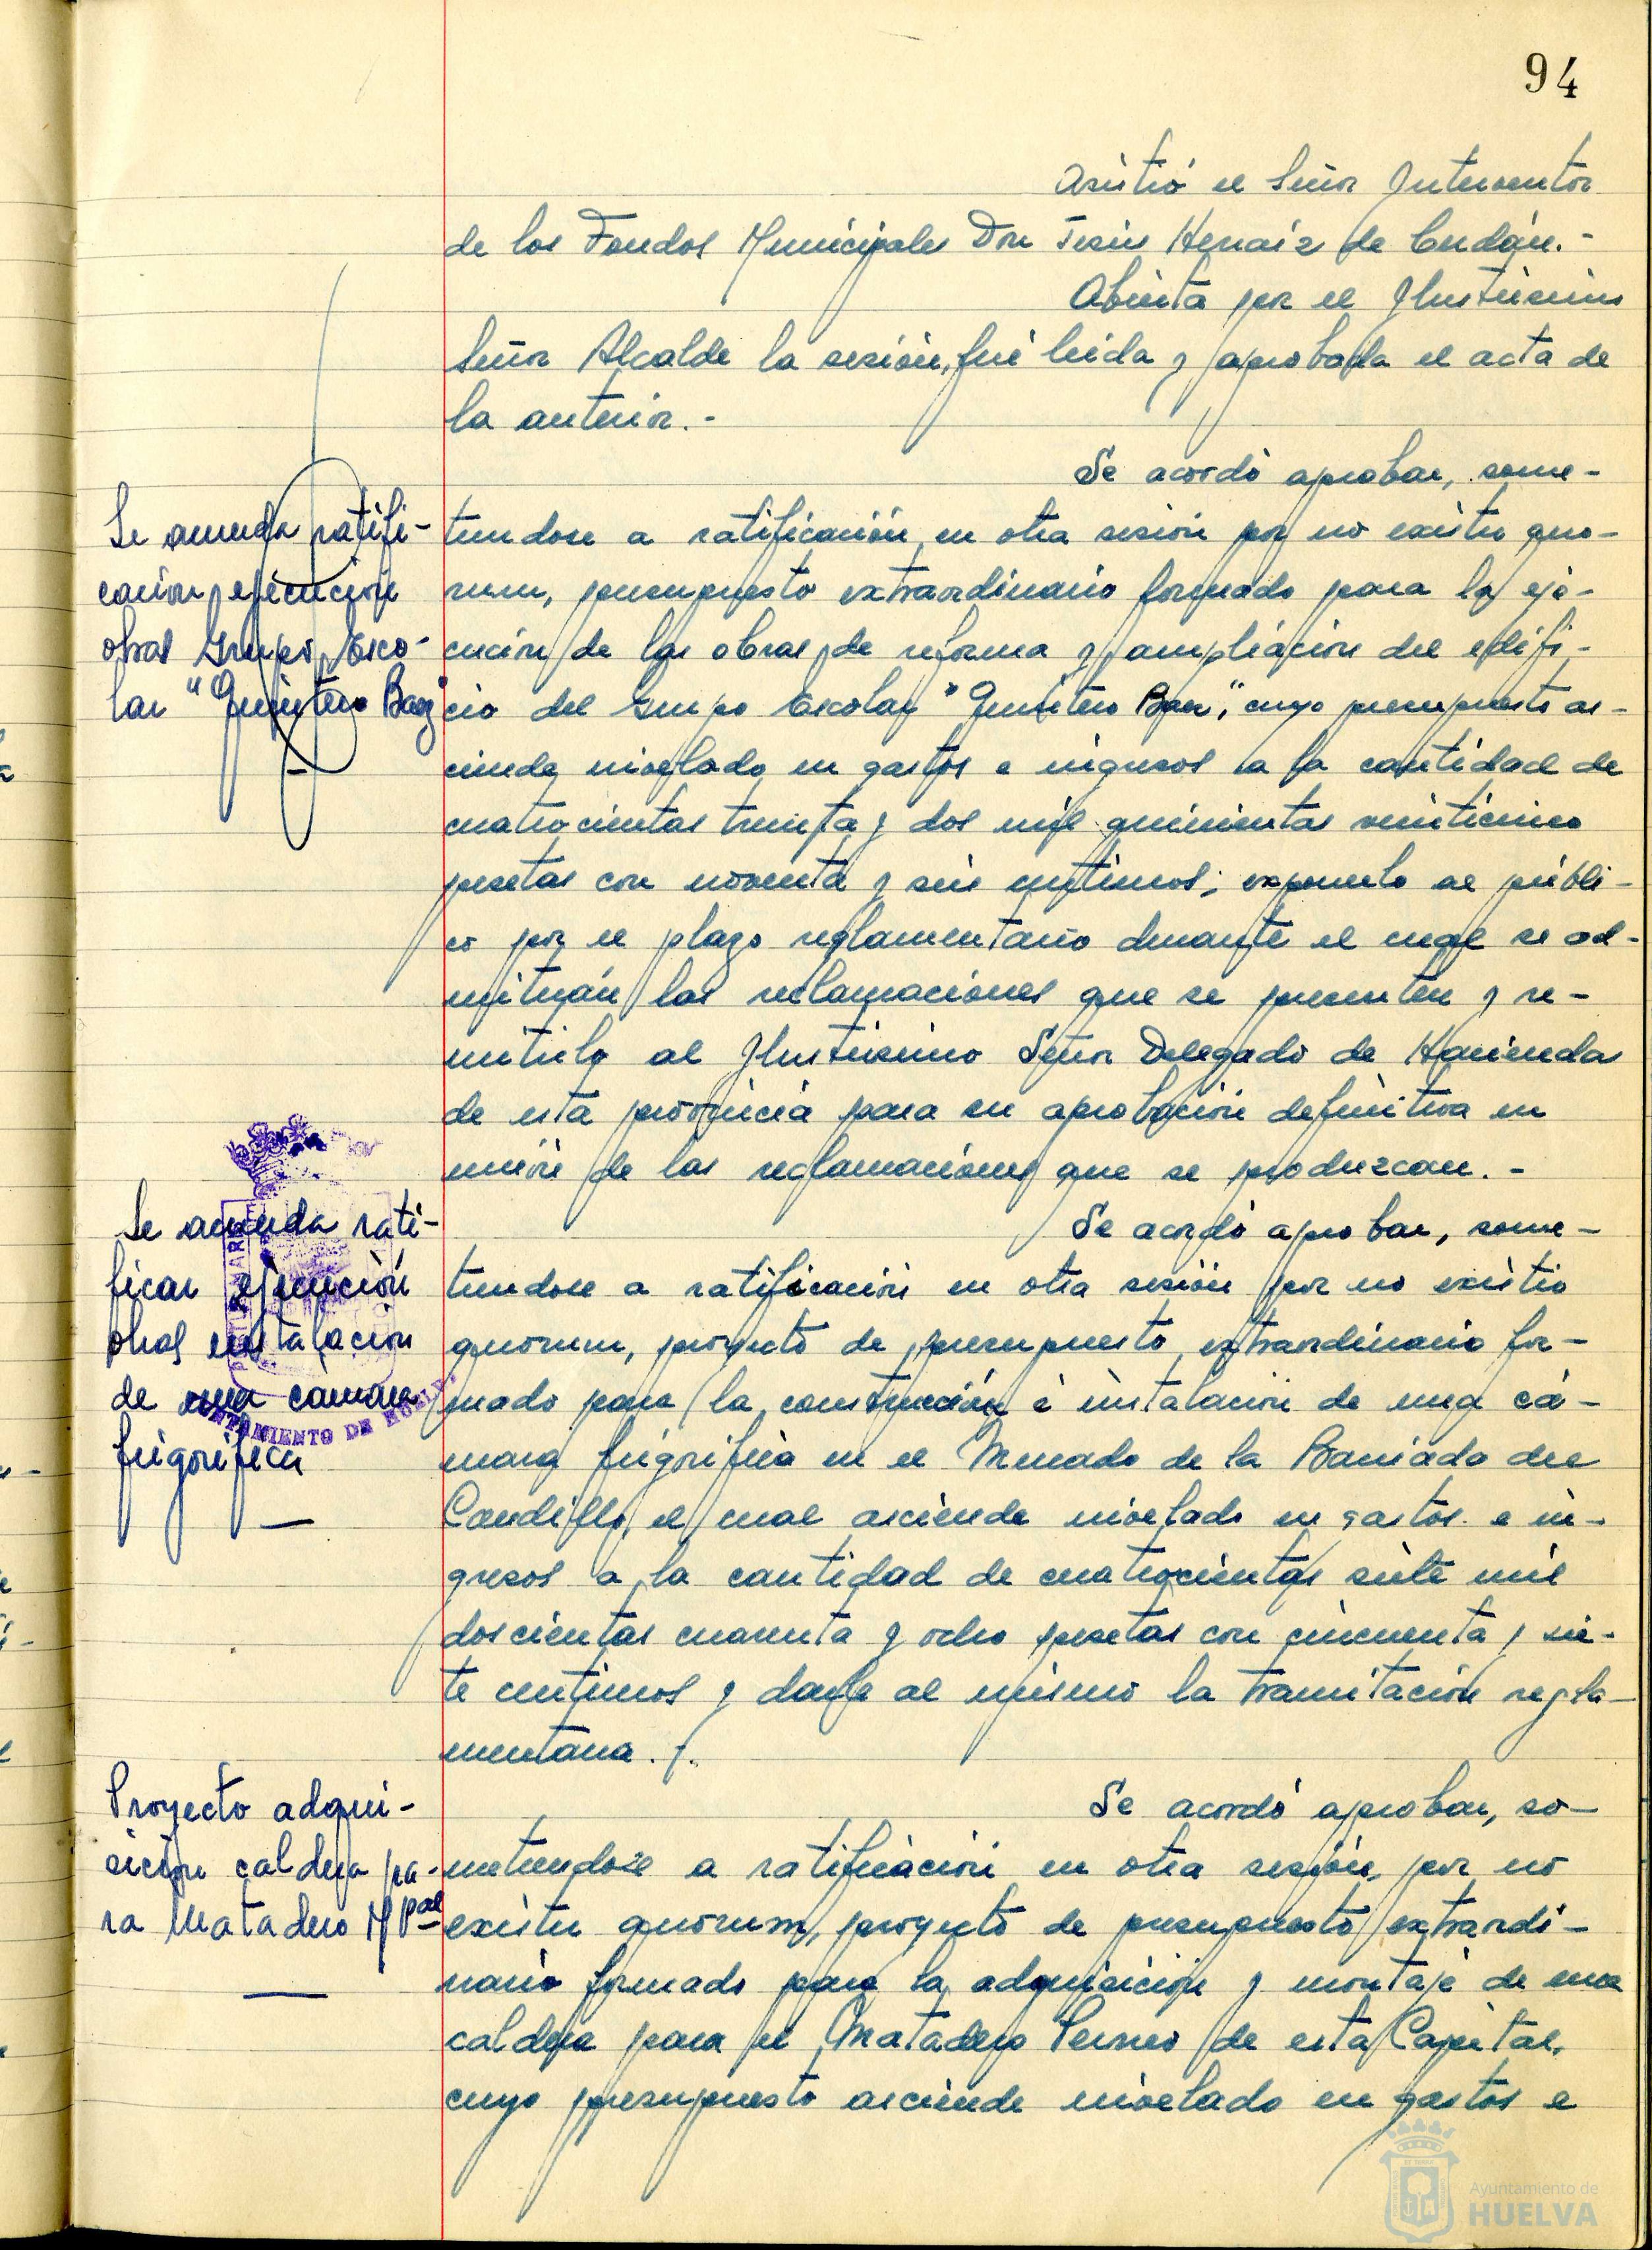 94
Asistió el Señor Interventor
de los Fondos Municipales Don Jesús Hernáiz de
Abierta por el Ilustrísimo
Señor Alcalde la sesión, fué leida y aprobada el acta de
la anterior.-
Se acordó aprobar, some-
Se acuerda ratifi-
cación ejecución
obras Grupo Esco-
lar "Quintero Baez"
tiendose a ratificación en otra sesión por no existir quo-
rum, presupuesto extraordinario formado para la eje-
cución de las obras de reforma y ampliación del edifi-
cio del Grupo Escolar "Quintero Baez", cuyo presupuesto as-
ciende nivelado en gastos e ingresos a la cantidad de
cuatrocientas treinta y dos mil quinientas veinticinco
pesetas con noventa y seis céntimos; exponerlo al públi-
co por el plazo reglamentario durante el cual se ad-
mitirán las reclamaciones que se presenten y re-
mitirlo al Ilustrisimo Señor Delegado de Hacienda
de esta provincia para su aprobación definitiva en
unión de las reclamaciones que se produzcan.-
Se acordó aprobar, some-
Se acuerda rati-
ficar ejecución
obras instalación
de una cámara
frigorífica
tiendose a ratificación en otra sesión por no existir
quorum, proyecto de presupuesto extraordinario for-
mado para la construcción é instalación de una cá-
mara frigorífica en el Mercado de la Barriada del
Caudillo, el cual asciende nivelado en gastos e in-
gresos a la cantidad de cuatrocientas siete mil
doscientas cuarenta y ocho pesetas con cincuenta y sie-
te centimos y darle al mismo la tramitación regla-
mentaria.-
Proyecto adqui-
sición caldera pa-
ra Matadero Mpal
Se acordó aprobar, so-
metiendose a ratificación en otra sesión, por no
existir quorum, proyecto de presupuesto extraordi-
nario formado para la adquisición y montaje de una
caldera para el Matadero de esta Capital,
cuyo presupuesto asciende nivelado en gastos e
AYUNTAMIENTO DE HUELVA
Ayuntamiento de
HUELVA